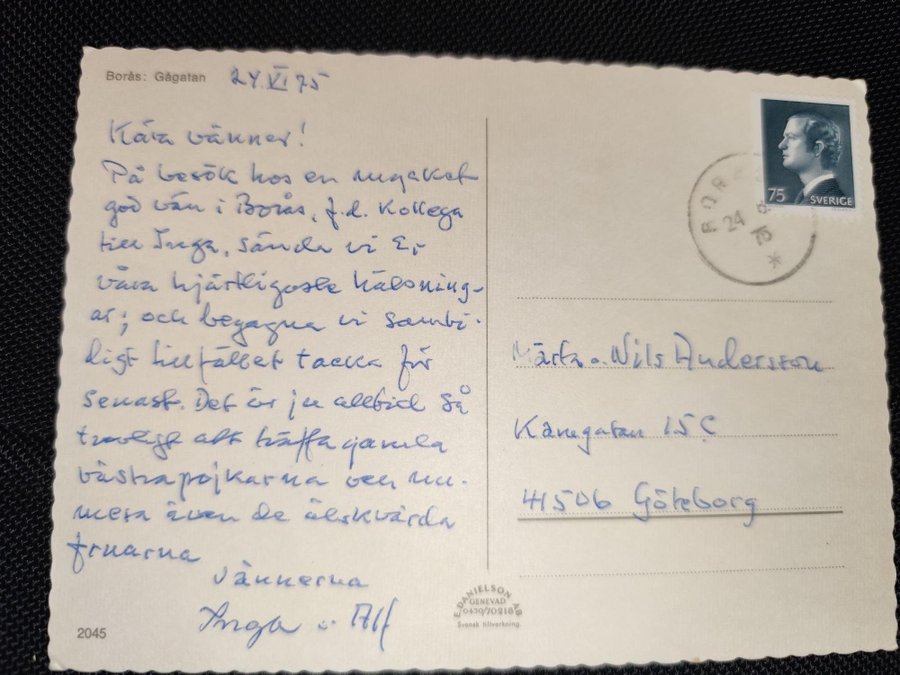 Borås: Gågatan 24.VI 75
Kära vänner!
På besök hos en mycket
god vän i Borås, f.d. kollega
till Inga, sända vi Er
våra hjärtligaste hälsning-
ar; och begagna vi samti-
digt tillfället tacka för
senast. Det är ju alltid så
trevligt att träffa gamla
västrapojkarna och nu-
mera även de älskvärda
fruarna
Vännerna
Inga o Alf
2045
75
SVERIGE
24
75
Märta o Nils Andersson
Kanegatan 15 C
41506 Göteborg
E. DANIELSON AB
GENEVAD
0430/70218
Svensk tillverkning.